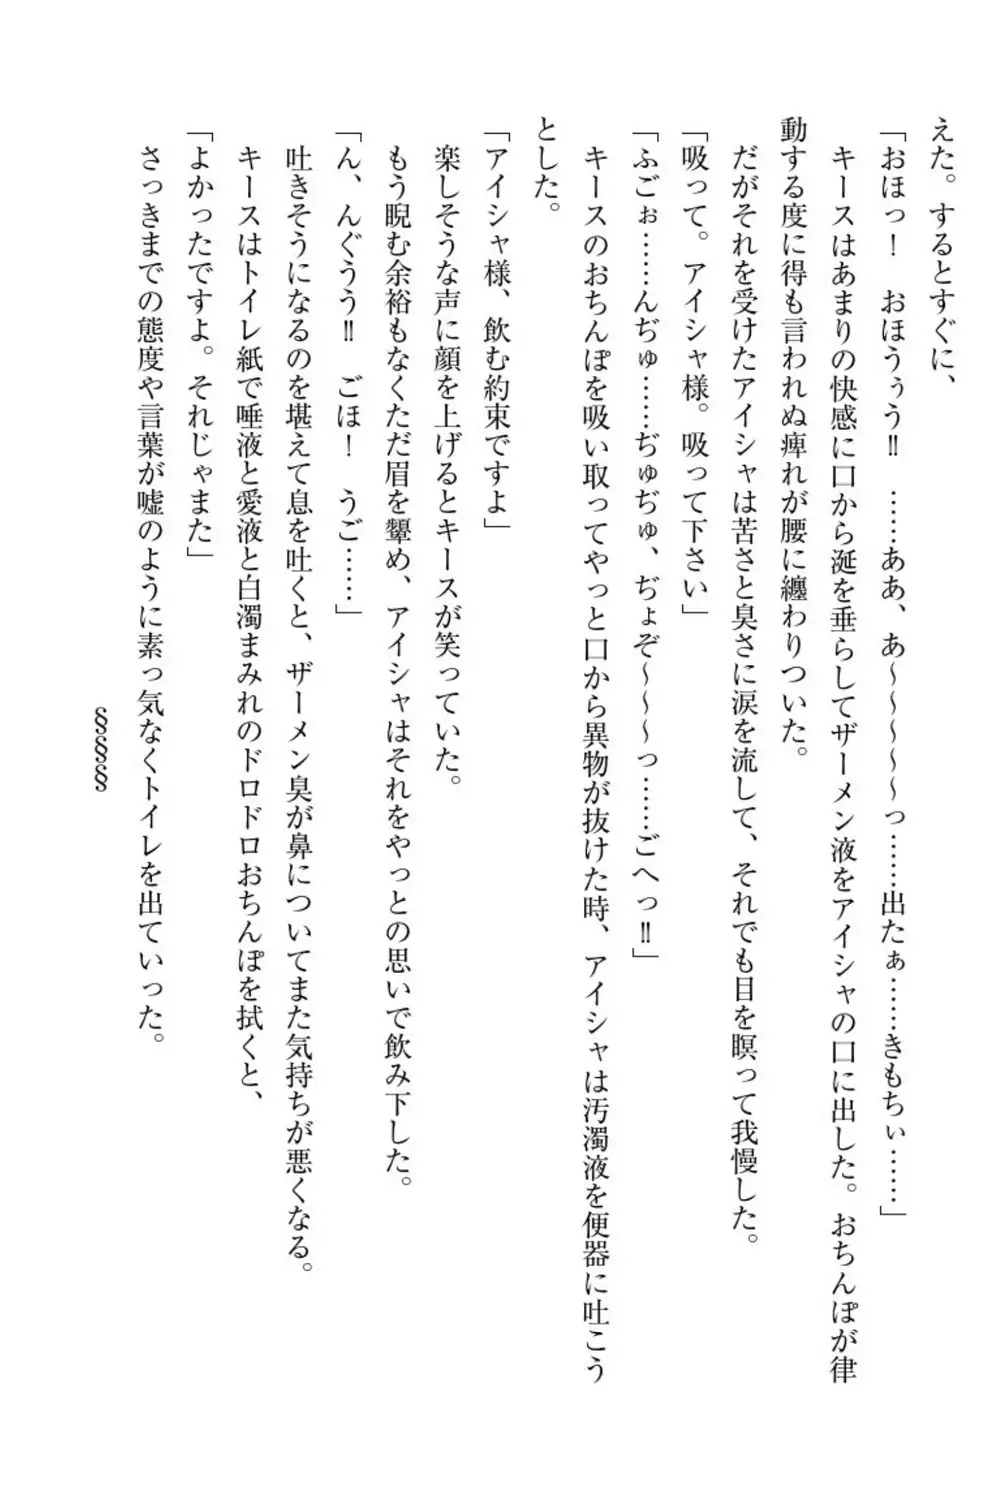 えた。するとすぐに、
「おほっ！　おほうぅう‼　……ああ、あ～～～～～っ……出たぁ……きもちぃ……」
　キースはあまりの快感に口から涎を垂らしてザーメン液をアイシャの口に出した。おちんぽが律
動する度に得も言われぬ痺れが腰に纏わりついた。
　だがそれを受けたアイシャは苦さと臭さに涙を流して、それでも目を瞑って我慢した。
「吸って。アイシャ様。吸って下さい」
「ふごぉ……んぢゅ……ぢゅぢゅ、ぢょぞ～～～っ……ごへっ‼」
　キースのおちんぽを吸い取ってやっと口から異物が抜けた時、アイシャは汚濁液を便器に吐こう
とした。
「アイシャ様、飲む約束ですよ」
　楽しそうな声に顔を上げるとキースが笑っていた。
　もう睨む余裕もなくただ眉を顰め、アイシャはそれをやっとの思いで飲み下した。
「ん、んぐうう‼　ごほ！　うご……」
　吐きそうになるのを堪えて息を吐くと、ザーメン臭が鼻についてまた気持ちが悪くなる。
　キースはトイレ紙で唾液と愛液と白濁まみれのドロドロおちんぽを拭くと、
「よかったですよ。それじゃまた」
　さっきまでの態度や言葉が嘘のように素っ気なくトイレを出ていった。
§§§§